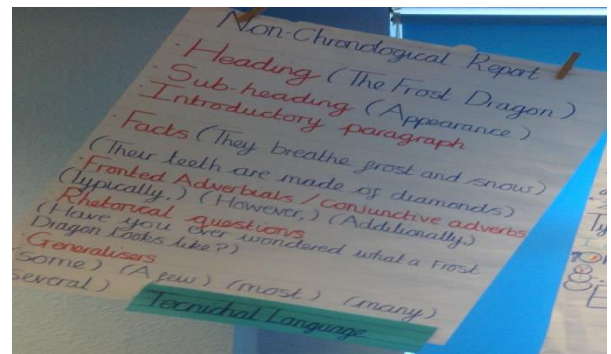 Non-Chronological Report
· Heading (The Frost Dragon)
· Sub-heading (Appearance)
· Introductory paragraph
· Facts (They breathe frost and snow)
(Their teeth are made of diamonds)
· Fronted Adverbials / conjunctive adverbs
(Typically,) (However,) (Additionally,)
Rhetorical questions
(Have you ever wondered what a Frost
Dragon looks like?)
· Generalisers
(some) (A few) (most) (many)
several)
Tecnichal Language